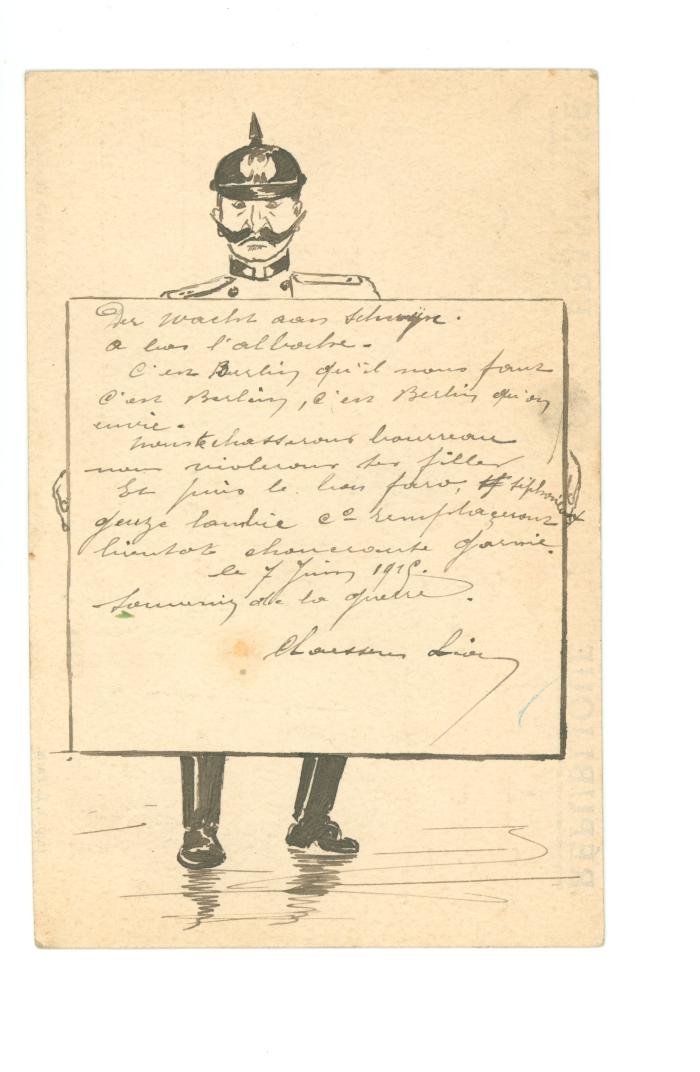 Der wacht aan schwyn.
a bas l'alboche.
C'est Berlin qu'il nous faut
C'est Berlin, c'est Berlin qu'on
envie.
nous chasserons bourreau
nous violerons ses filles
Et puis le bon faro,
geuze lambic Cº remplaceront
bientot choucroute garnie.
le 7 Juin 1915.
Souvenir de la guerre.
RÉPUBLIQUE FRANÇAISE